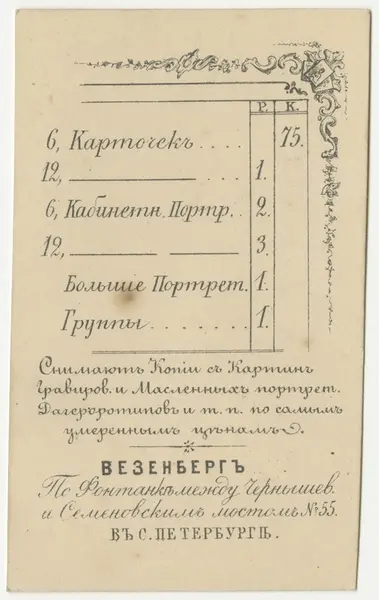 Р. К.
6, Карточекъ . . . . 75.
12, ——— . . . 1.
6, Кабинетн. Портр. . 2.
12, ——— ——— 3.
Большіе Портрет. 1.
Группы . . . . . . . 1.
Снимаютъ Копіи съ Картинъ
Гравиров. и Масленныхъ портрет.
Дагерротиповъ и т. п. по самымъ
умереннымъ цѣнамъ.
ВЕЗЕНБЕРГЪ
По Фонтанкѣ между Чернышев.
и Семеновскимъ мостомъ № 55.
ВЪ С. ПЕТЕРБУРГѢ.